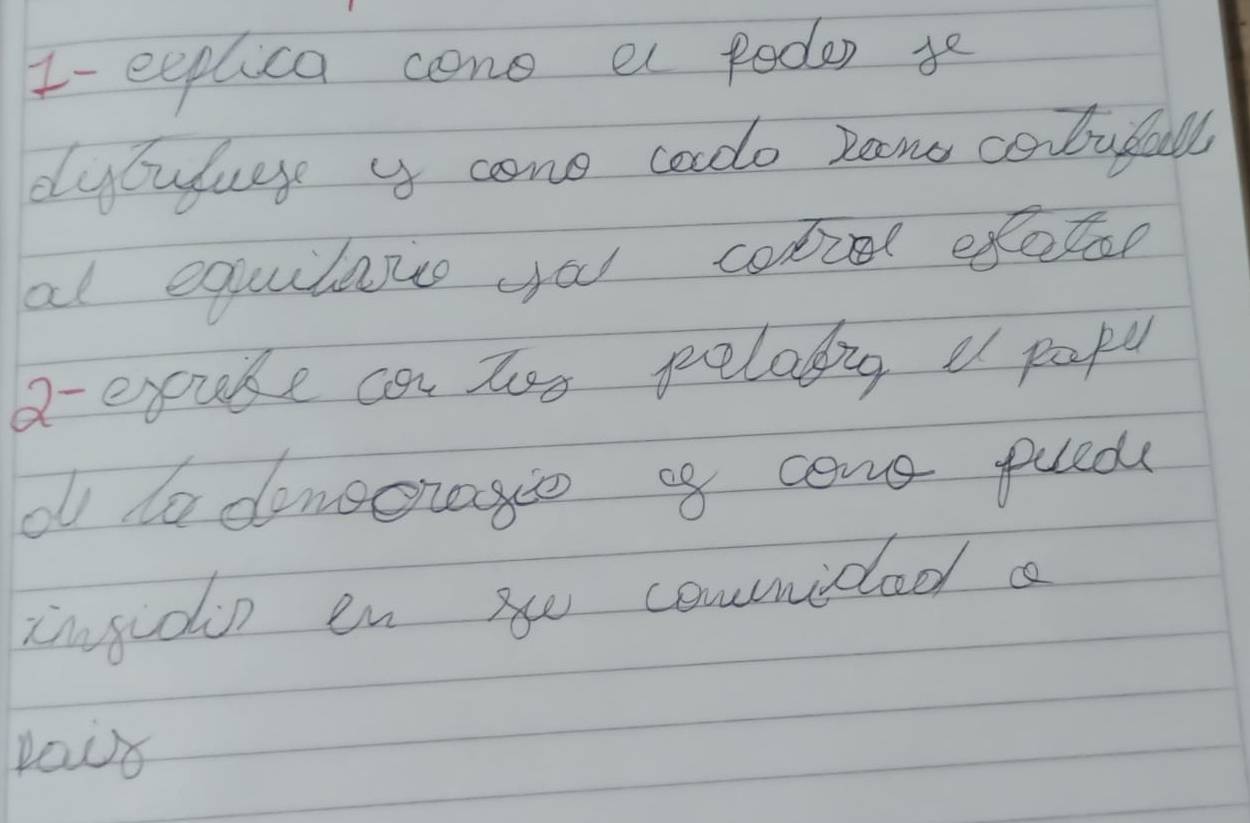 1- explica como el Poder se
dystrufuese y como cada rama contribull
al equilibrio y al cotrol estatal
2- escribe con tus palabra el papel
de la demoorasio y como puede
insidir en su comunidad o
Pais